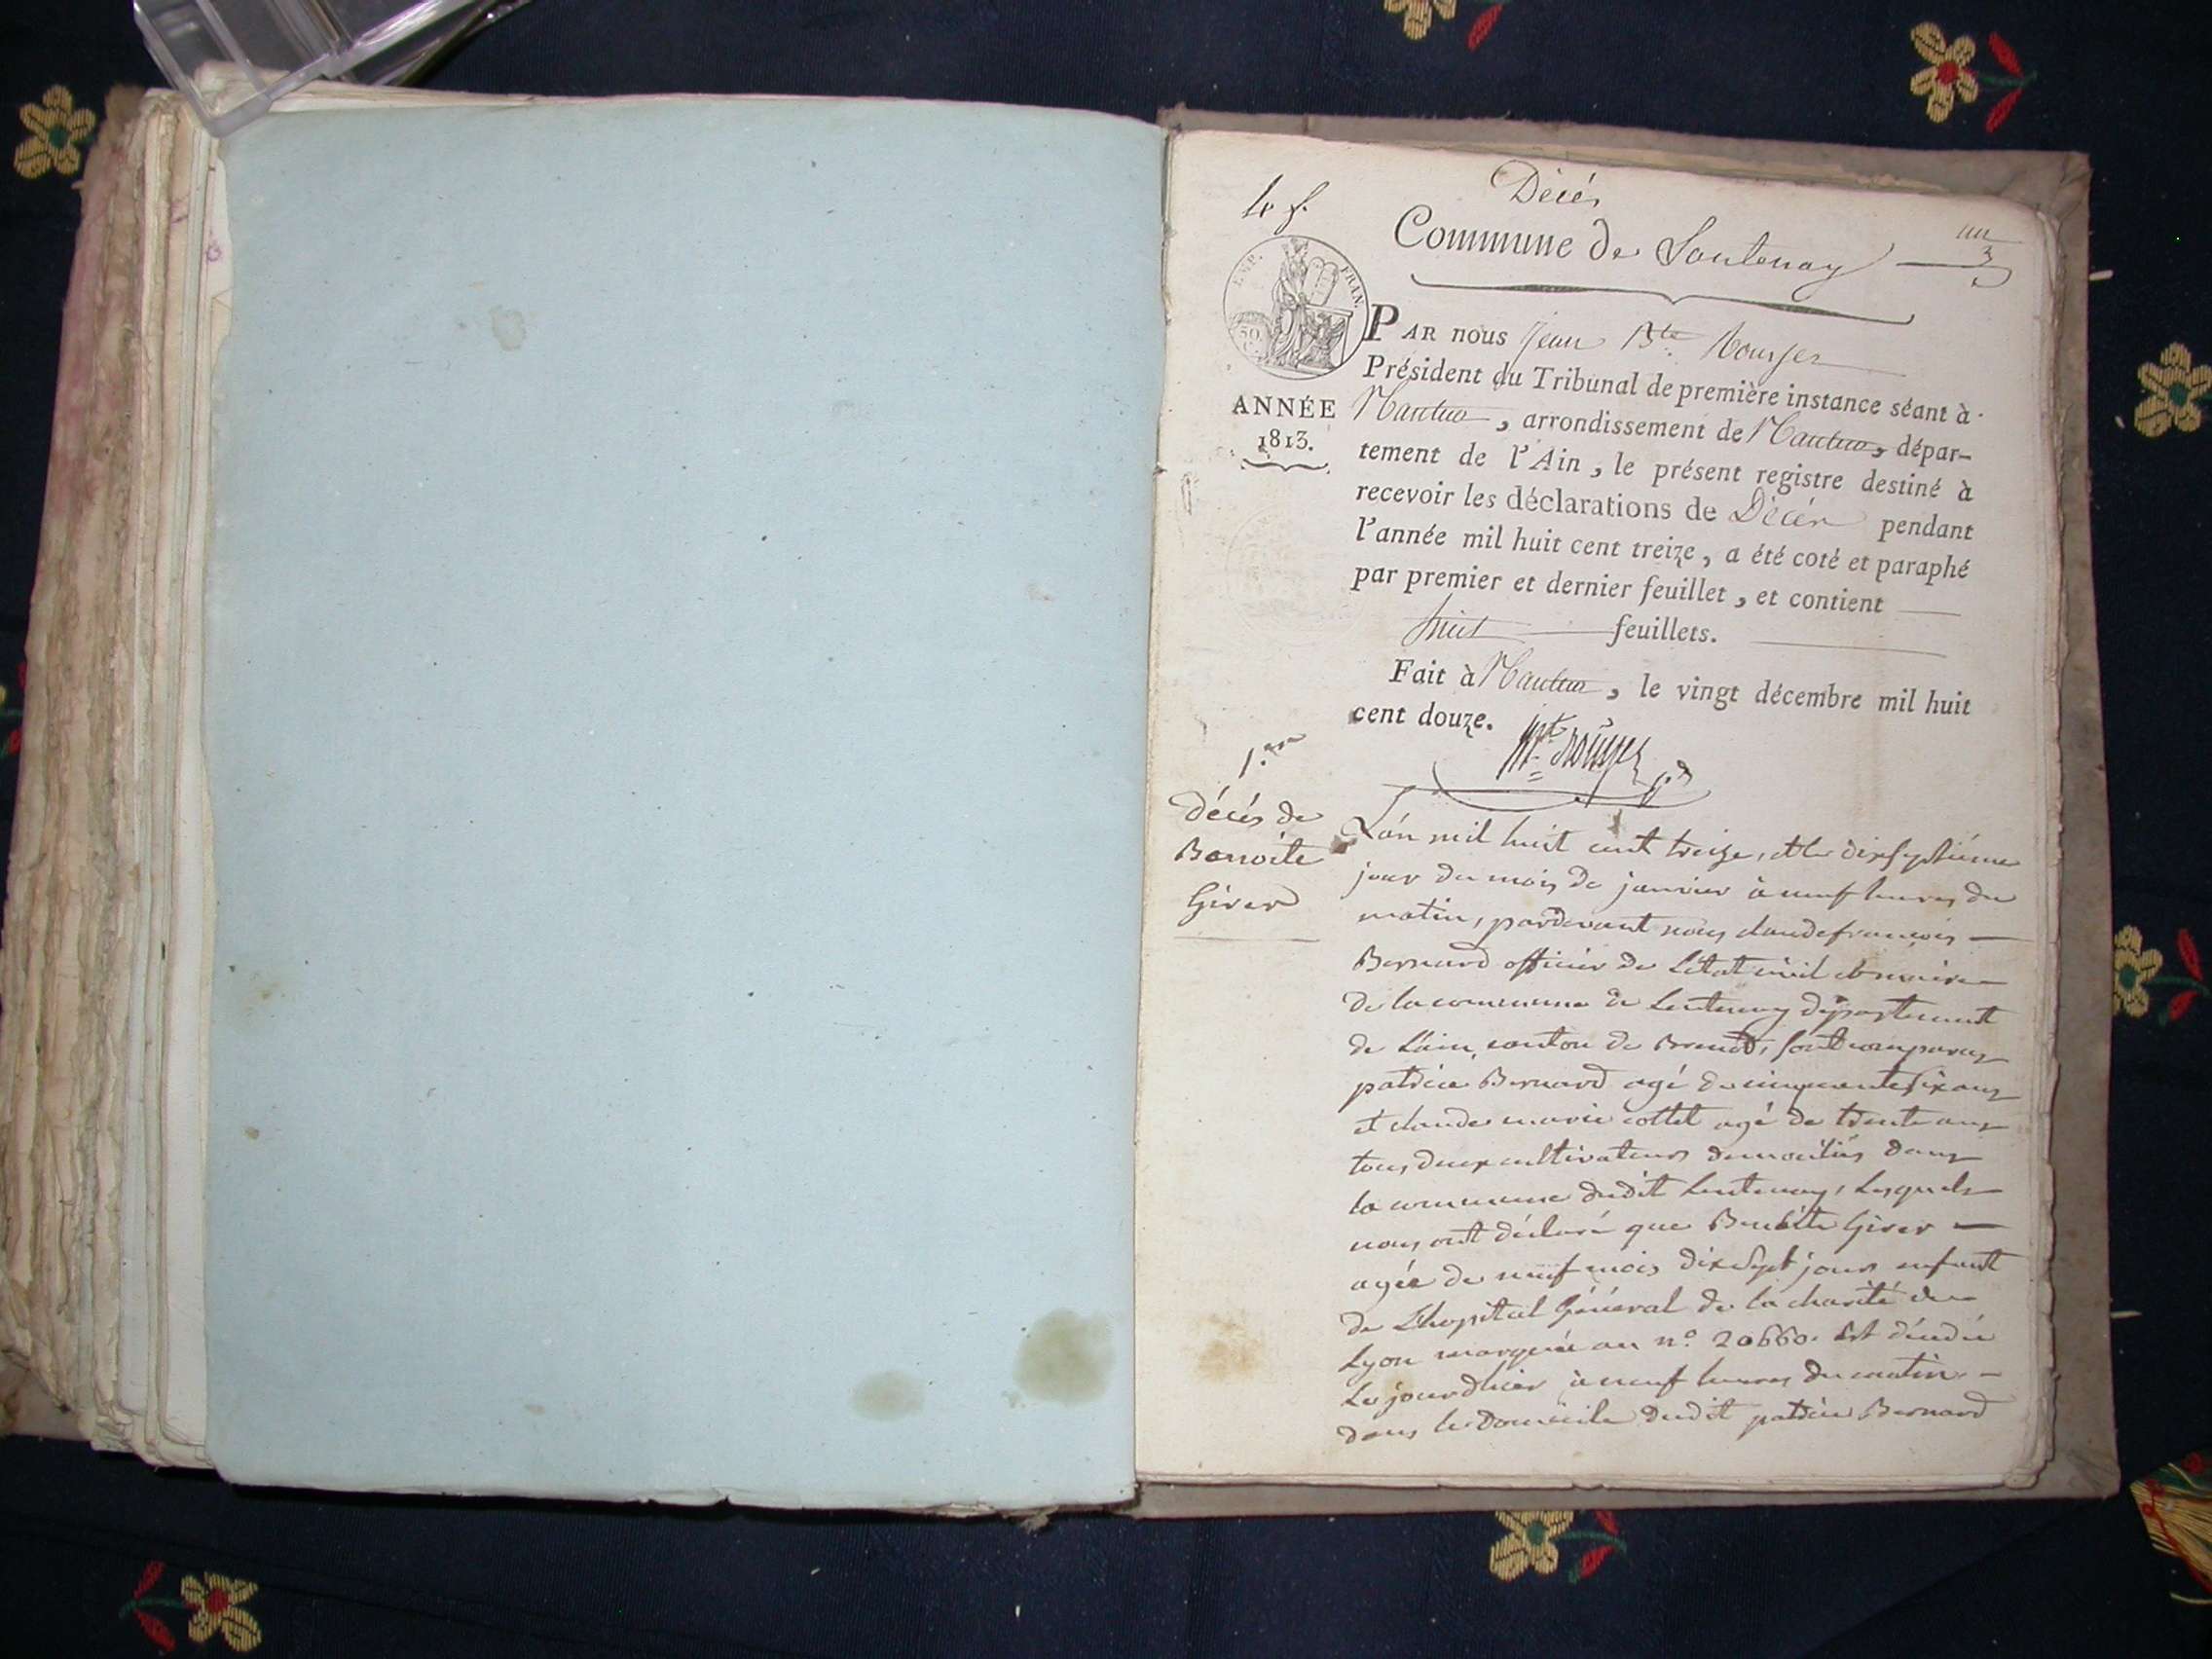 Décès
4 f.
Commune de Lentenay
un
EMP. FRAN.
50
PAR nous Jean Bte Rouyer
Président du Tribunal de première instance séant à
ANNÉE
1813.
Nantua, arrondissement de Nantua, dépar-
tement de l'Ain, le présent registre destiné à
recevoir les déclarations de Décès pendant
l'année mil huit cent treize, a été coté et paraphé
par premier et dernier feuillet, et contient
huit feuillets.
Fait à Nantua, le vingt décembre mil huit
cent douze.
1.er
décès de
Benoite
Girer
L'an mil huit cent treize, et le dixseptième
jour du mois de janvier à neuf heures du
matin, pardevant nous claude françois
Bernard officier de L'état civil et maire
de la commune de Lentenay département
de L'ain, canton de Brenod, sont comparus
patrice Bernard agé de cinquante six ans
et claude marie collet agé de trente ans
tous deux cultivateurs domiciliés dans
la commune dudit Lentenay, Lesquels
nous ont déclaré que Benoite Girer
agée de neuf mois dix sept jours enfant
de L'hopital Général de la charité de
Lyon marquée au n.o 20660. Est décédée
Le jour d'hier à neuf heures du matin
dans le Domicile dudit patrice Bernard